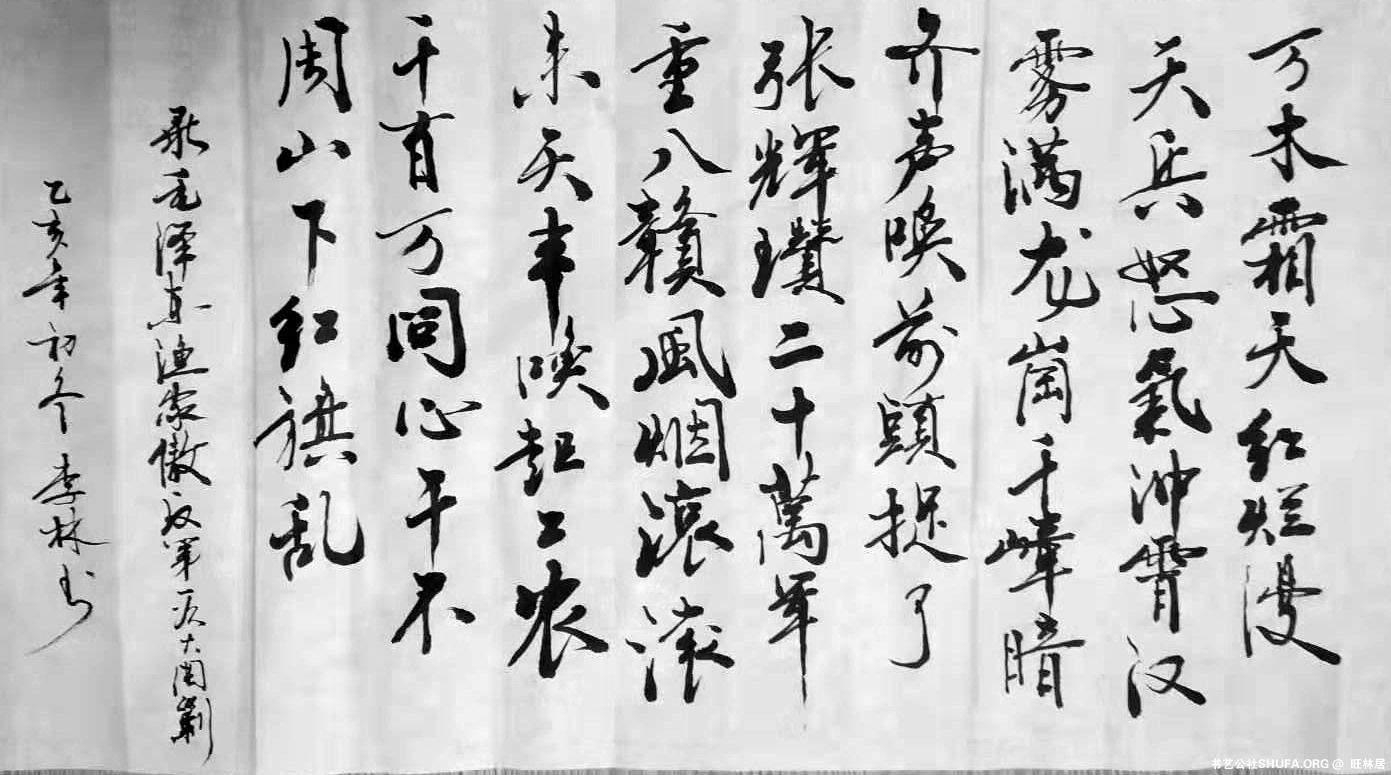 万木霜天红烂漫
天兵怒氣沖霄汉
雾满龙岗千嶂暗
齐声唤前頭捉了
张辉瓒二十萬军
重入赣风烟滚滚
来天半唤起工农
千百万同心干不
周山下红旗乱
录毛泽东渔家傲反第一次大围剿
乙亥年初冬李林书
书艺公社SHUFA.ORG @ 旺林居